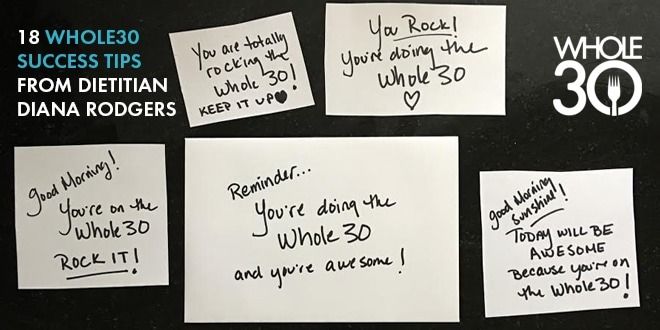 18 WHOLE30
SUCCESS TIPS
FROM DIETITIAN
DIANA RODGERS
You are totally
rocking the
Whole 30!
KEEP IT UP♥
You Rock!
You're doing the
Whole 30
♡
WHOLE
30
Good Morning!
You're on the
Whole 30
ROCK IT!
Reminder...
You're doing the
Whole 30
and you're awesome!
Good Morning
Sunshine!
TODAY WILL BE
AWESOME
Because you're on
the Whole 30!